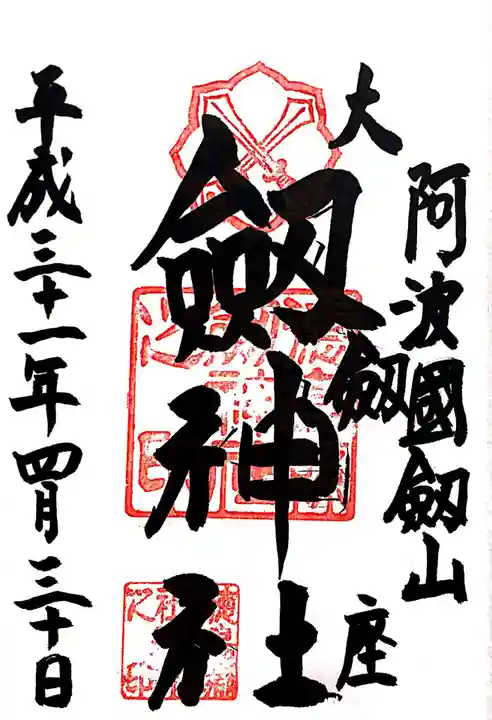 阿波國劔山
大劔座
劔神社
平成三十一年四月三十日